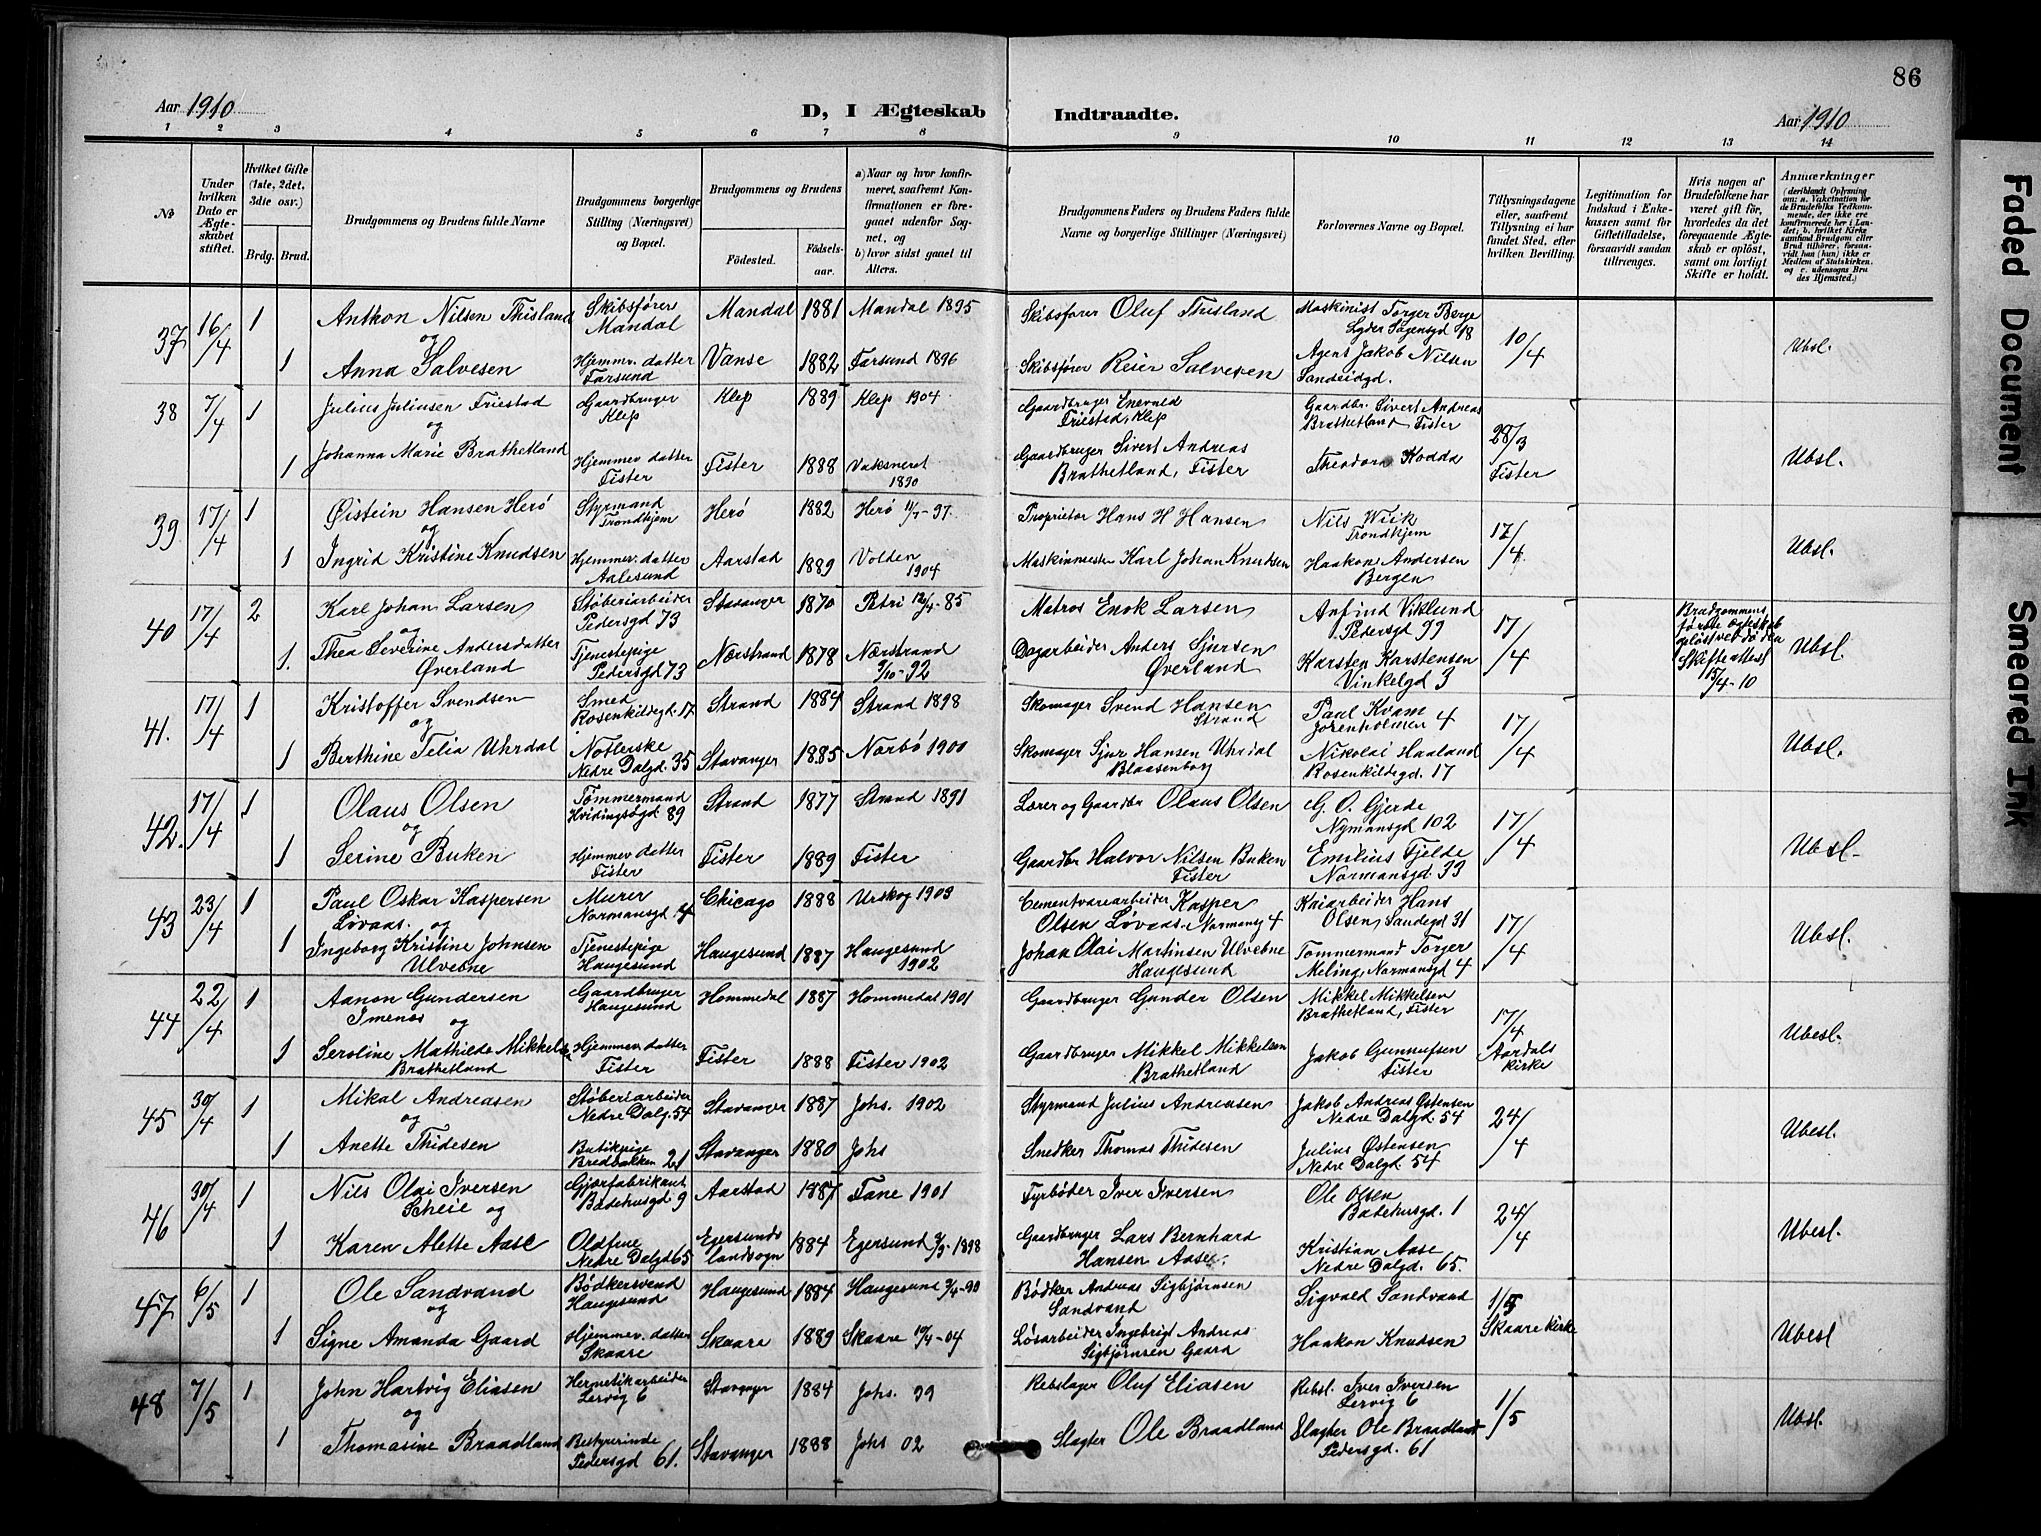 86
Aar 1910
D, I Ægteskab Indtraadte.
Aar 1910
1 2 3 4 5 6 7 8 9 10 11 12 13 14
No
Under hvilken Dato er Ægteskabet stiftet.
Hvilket Gifte (1ste, 2det, 3die osv.)
Brdg. Brud.
Brudgommens og Brudens fulde Navne
Brudgommens borgerlige Stilling (Næringsvei) og Bopæl.
Brudgommens og Brudens
Fødested. Fødselsaar.
a) Naar og hvor konfirmeret, saafremt Konfirmationen er foregaaet udenfor Sognet, og
b) hvor sidst gaaet til Alters.
Brudgommens Faders og Brudens Faders fulde Navne og borgerlige Stillinger (Næringsvei)
Forlovernes Navne og Bopæl.
Tillysningsdagene eller, saafremt Tillysning ei har fundet Sted, efter hvilken Bevilling.
Legitimation for Indskud i Enkekassen samt for Giftetilladelse, forsaavidt saadan tiltrænges.
Hvis nogen af Brudefolkene har været gift før, hvorledes da det foregaaende Ægteskab er opløst, samt om lovligt Skifte er holdt.
Anmærkninger
(deriblandt Oplysning om: a. Vakcination for de Brudefolks Vedkommende, der ikke ere konfirmerede her i Landet; b. hvilket Kirkesamfund Brudgom eller Brud tilhører, forsaavidt han (hun) ikke er Medlem af Statskirken, og c. udensogns Brudes Hjemsted.)
37 16/4 1 Anthon Nilsen Thisland Skibsfører Mandal Mandal 1881 Mandal 1895 Skibsfører Oluf Thisland Maskinist Torger Berge Lyder Sagensgd 18 10/4
og
1 Anna Salvesen Hjemmv. datter Farsund Vanse 1882 Farsund 1896 Skibsfører Reier Salvesen Agent Jakob Nilsen Sandeidgd. Ubsl.
38 7/4 1 Julius Juliusen Friestad Gaardbruger Klep Klep 1889 Klep 1904 Gaardbruger Enevald Friestad, Klep Gaardbr. Sivert Andreas Brathetland, Fister 28/3 Fister
og
1 Johanna Marie Brathetland Hjemmev datter Fister Fister 1888 Vaksneret 1890 Gaardbruger Sivert Andreas Brathetland, Fister Theodora Hodda Ubsl.
39 17/4 1 Øistein Hansen Herø Styrmand Trondhjem Herø 1882 Herø 11/7-97. Proprietør Hans H Hansen Nils Wiik Trondhjem 17/4
og
1 Ingrid Kristine Knudsen Hjemmev. datter Aalesund Aarstad 1889 Volden 1904 Maskinmester Karl Johan Knudsen Haakon Andersen Bergen Ubsl.
40 17/4 2 Karl Johan Larsen Støberiarbeider Pedersgd 73 Stavanger 1870 Petri 12/4-85 Matros Enok Larsen Arfind Viklund Pedersgd 99 17/4 Brudgommens første ægteskab opløst ved døden Skifteattest 15/4-10
og
1. Thea Severine Andersdatter Øverland Tjenestepige Pedersgd 73 Nærstrand 1878 Nærstrand 9/10-92 Dagarbeider Anders Sjursen Øverland Karsten Karstensen Vinkelgd 3 Ubsl.
41. 17/4 1 Kristoffer Svendsen Smed Rosenkildegd. 17 Strand 1884 Strand 1898 Skomager Svend Hansen Strand Paul Kvam Jorenholmen 4 17/4
og
1 Berthine Telia Uhrdal Notterske Nedre Dalgd. 35 Stavanger 1885 Narbø 1900 Skomager Sjur Hansen Uhrdal Blaasenborg Nikolai Haaland Rosenkildegd. 17 Ubsl.
42. 17/4 1 Olaus Olsen Tømmermand Hvidingsøgd 89 Strand 1877 Strand 1891 Lærer og Gaardbr Olaus Olsen G. O. Gjerde Nymansgd 102 17/4
og
1 Serine Buken Hjemmev datter Fister Fister 1889 Fister Gaardbr Halvor Nilsen Buken Fister Emilius Fjelde Normansgd. 33 Ubsl.
43 23/4 1 Paul Oskar Kaspersen Løvaas. og Murer Normansgd 4 Chicago 1888 Urskog 1903 Cementvarearbeider Kasper Olsen Løvaas. Normansg 4 Kaiarbeider Hans Olsen, Sandegd 31 17/4
1 Ingeborg Kristine Johnsen Ulvebne Tjenestepige Haugesund Haugesund 1887 Haugesund 1902 Johan Olai Martinsen Ulvebne Haugesund Tømmermand Torger Meling, Normansgd 4 Ubsl.
44 22/4 1 Aanon Gundersen Imenæs og Gaardbruger Haugesund Hommedal 1887 Hommedal 1901 Gaardbruger Gunder Olsen Mikkel Mikkelsen Brathetland, Fister 17/4 Aardals kirke
1 Seroline Mathilde Mikkelsen Brathetland Hjemmev. datter Fister Fister 1888 Fister 1902 Gaardbruger Mikkel Mikkelsen Brathetland Jakob Gunnufsen Fister Ubesl.
45 30/4 1 Mikal Andreasen Støberiarbeider Nedre Dalg. 54 Stavanger 1887 Johs. 1902 Styrmand Julius Andreasen Jakob Andreas Østensen Nedre Dalgd. 54 24/4
og
1 Anette Thidesen Butikpige Bredbakken 21 Stavanger 1880 Johs Snedker Thomas Thidesen Julius Østensen Nedre Dalgd. 54 Ubesl.
46 30/4 1 Nils Olai Iversen Scheie og Gjærfabrikant Badehusgd 9 Aarstad 1887 Fane 1901 Fyrbøder Iver Iversen Ole Olsen Badehusgd. 1 24/4
1 Karen Alette Aase Oldfrue Nedre Dalgd 65 Egersunds landsogn 1884 Egersund 2/3-1898 Gaardbruger Lars Bernhard Hansen Aase. Kristian Aase Nedre Dalgd. 65. Ubesl.
47 6/5 1 Ole Sandvand Bødkersvend Haugesund Haugesund 1884 Haugesund Bødker Andreas Sigbjørnsen Sandvand Sigvald Sandvand 1/5 Skaare kirke
og
1 Signe Amanda Gaard Hjemmev. datter Skaare Skaare 1889 Skaare 10/4-04 Løsarbeider Ingebrigt Andreas Sigbjørnsen Gaard Haakon Knudsen Ubesl
48 7/5 1 John Hartvig Eliasen Hermetikarbeider Lervig 6 Stavanger 1884 Johs. 99 Rebslager Oluf Eliasen Rebsl. Iver Iversen Lervig 6 1/5
og
1 Thomasine Braadland Bestyrerinde Pedersgd 61. Stavanger 1888 Johs 02 Slagter Ole Braadland Slagter Ole Braadland Pedersgd. 61 Ubsl.
Faded Document
Smeared Ink